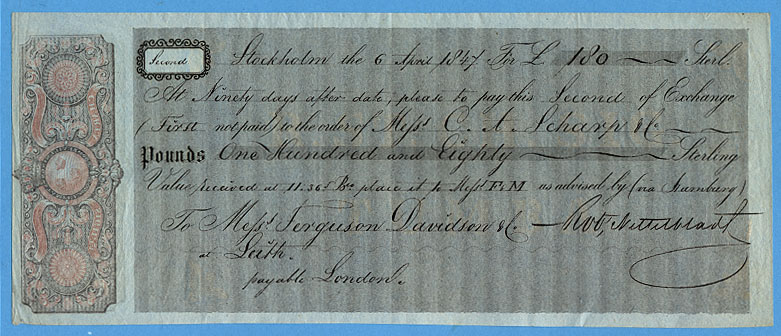 Second Stockholm the 6 April 1847 For £ 180 Sterl.
At Ninety days after date, please to pay this Second of Exchange
(First not paid) to the order of Messrs C. A. Scharp & Co
Pounds One Hundred and Eighty Sterling
Value received at 11.56 Bco place it to Messrs F. M as advised by (via Hamburg)
To Messrs Ferguson Davidson & Co. Rob, Nettelbladt
at Leith.
payable London.